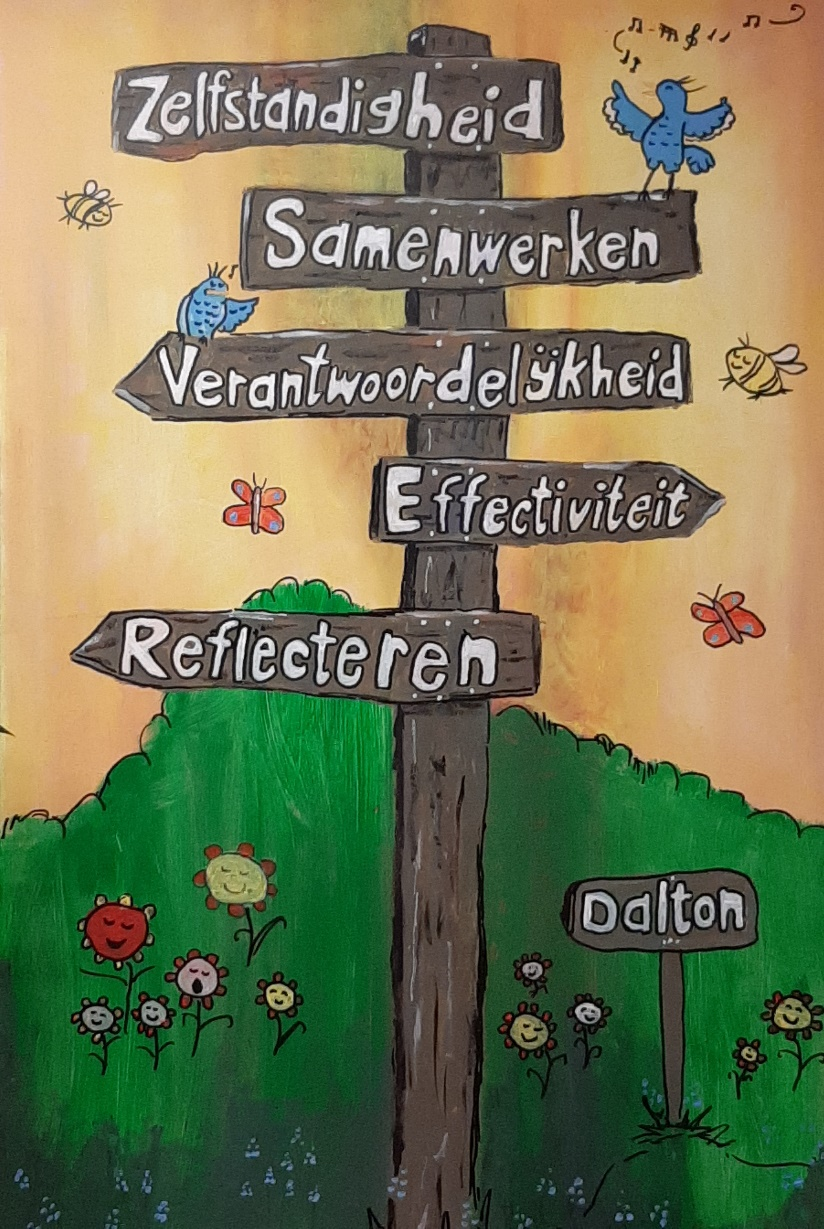 Zelfstandigheid
Samenwerken
Verantwoordelijkheid
Effectiviteit
Reflecteren
Dalton